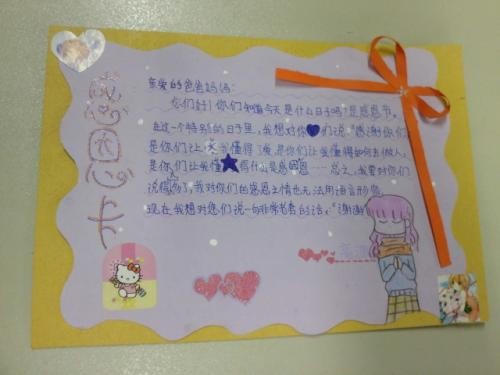 感恩卡
亲爱的爸爸妈妈:
你们好!你们知道今天是什么日子吗?是感恩节。
在这一个特别的日子里,我想对你们说:“感谢你们,
是你们让我懂得了爱,是你们让我懂得如何去做人,
是你们让我懂得什么是感恩……总之,我要对你们
说 了,我对你们的感恩之情也无法用语言形容
现在我想对您们说一句非常老套的话,“谢谢